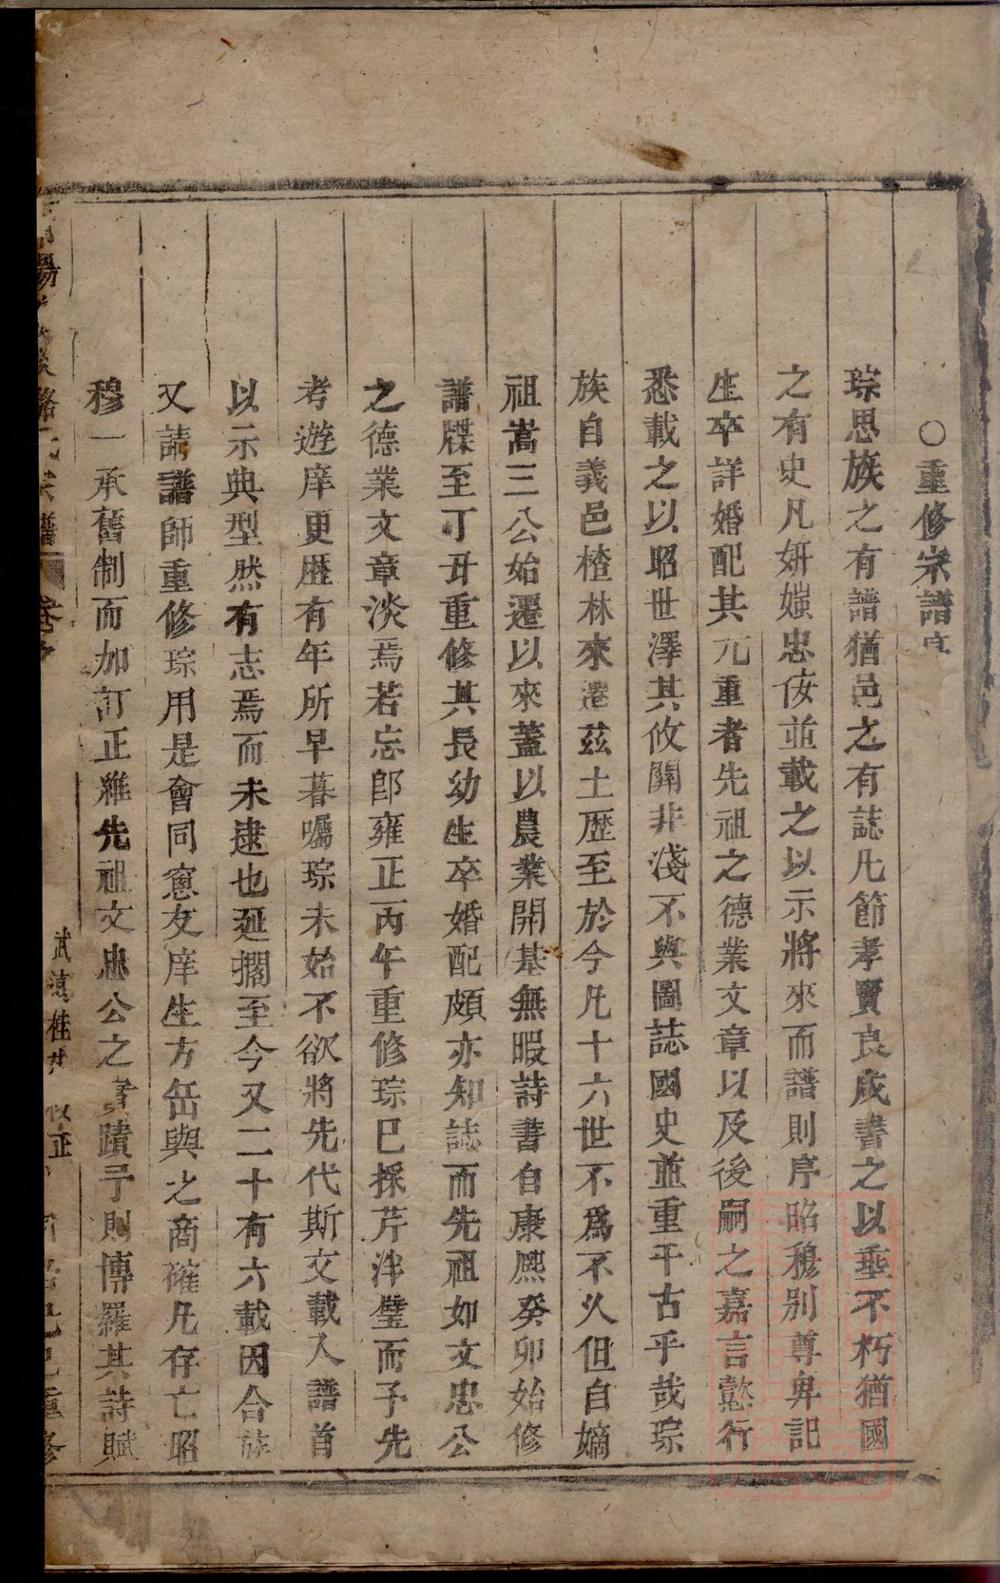 ○重修宗譜序
琮思族之有譜猶邑之有誌凡節孝賢良咸書之以垂不朽猶國
之有史凡妍媸忠佞並載之以示將來而譜則序昭穆別尊卑記
生卒詳婚配其元重者先祖之德業文章以及後嗣之嘉言懿行
悉載之以昭世澤其攸關非淺不與圖誌國史並重乎古乎哉琮
族自義邑楂林來遷茲土歷至於今凡十六世不爲不乆但自嫡
祖嵩三公始遷以來葢以農業開基無暇詩書自康熈癸卯始修
譜牒至丁丑重修其長幼生卒婚配頗亦知誌而先祖如文忠公
之德業文章淡焉若忘卽雍正丙午重修琮巳採芹泮璧而予先
考遊庠更歷有年所早暮囑琮未始不欲將先代斯文載入譜首
以示典型然有志焉而未逮也延擱至今又二十有六載因合族
又請譜師重修琮用是會同窻友庠生方岳與之商確凡存亡昭
穆一承舊制而加訂正雖先祖文忠公之實蹟予則傳羅其詩賦
陽 駱氏宗譜 卷之 桂 攸正 己巳重修